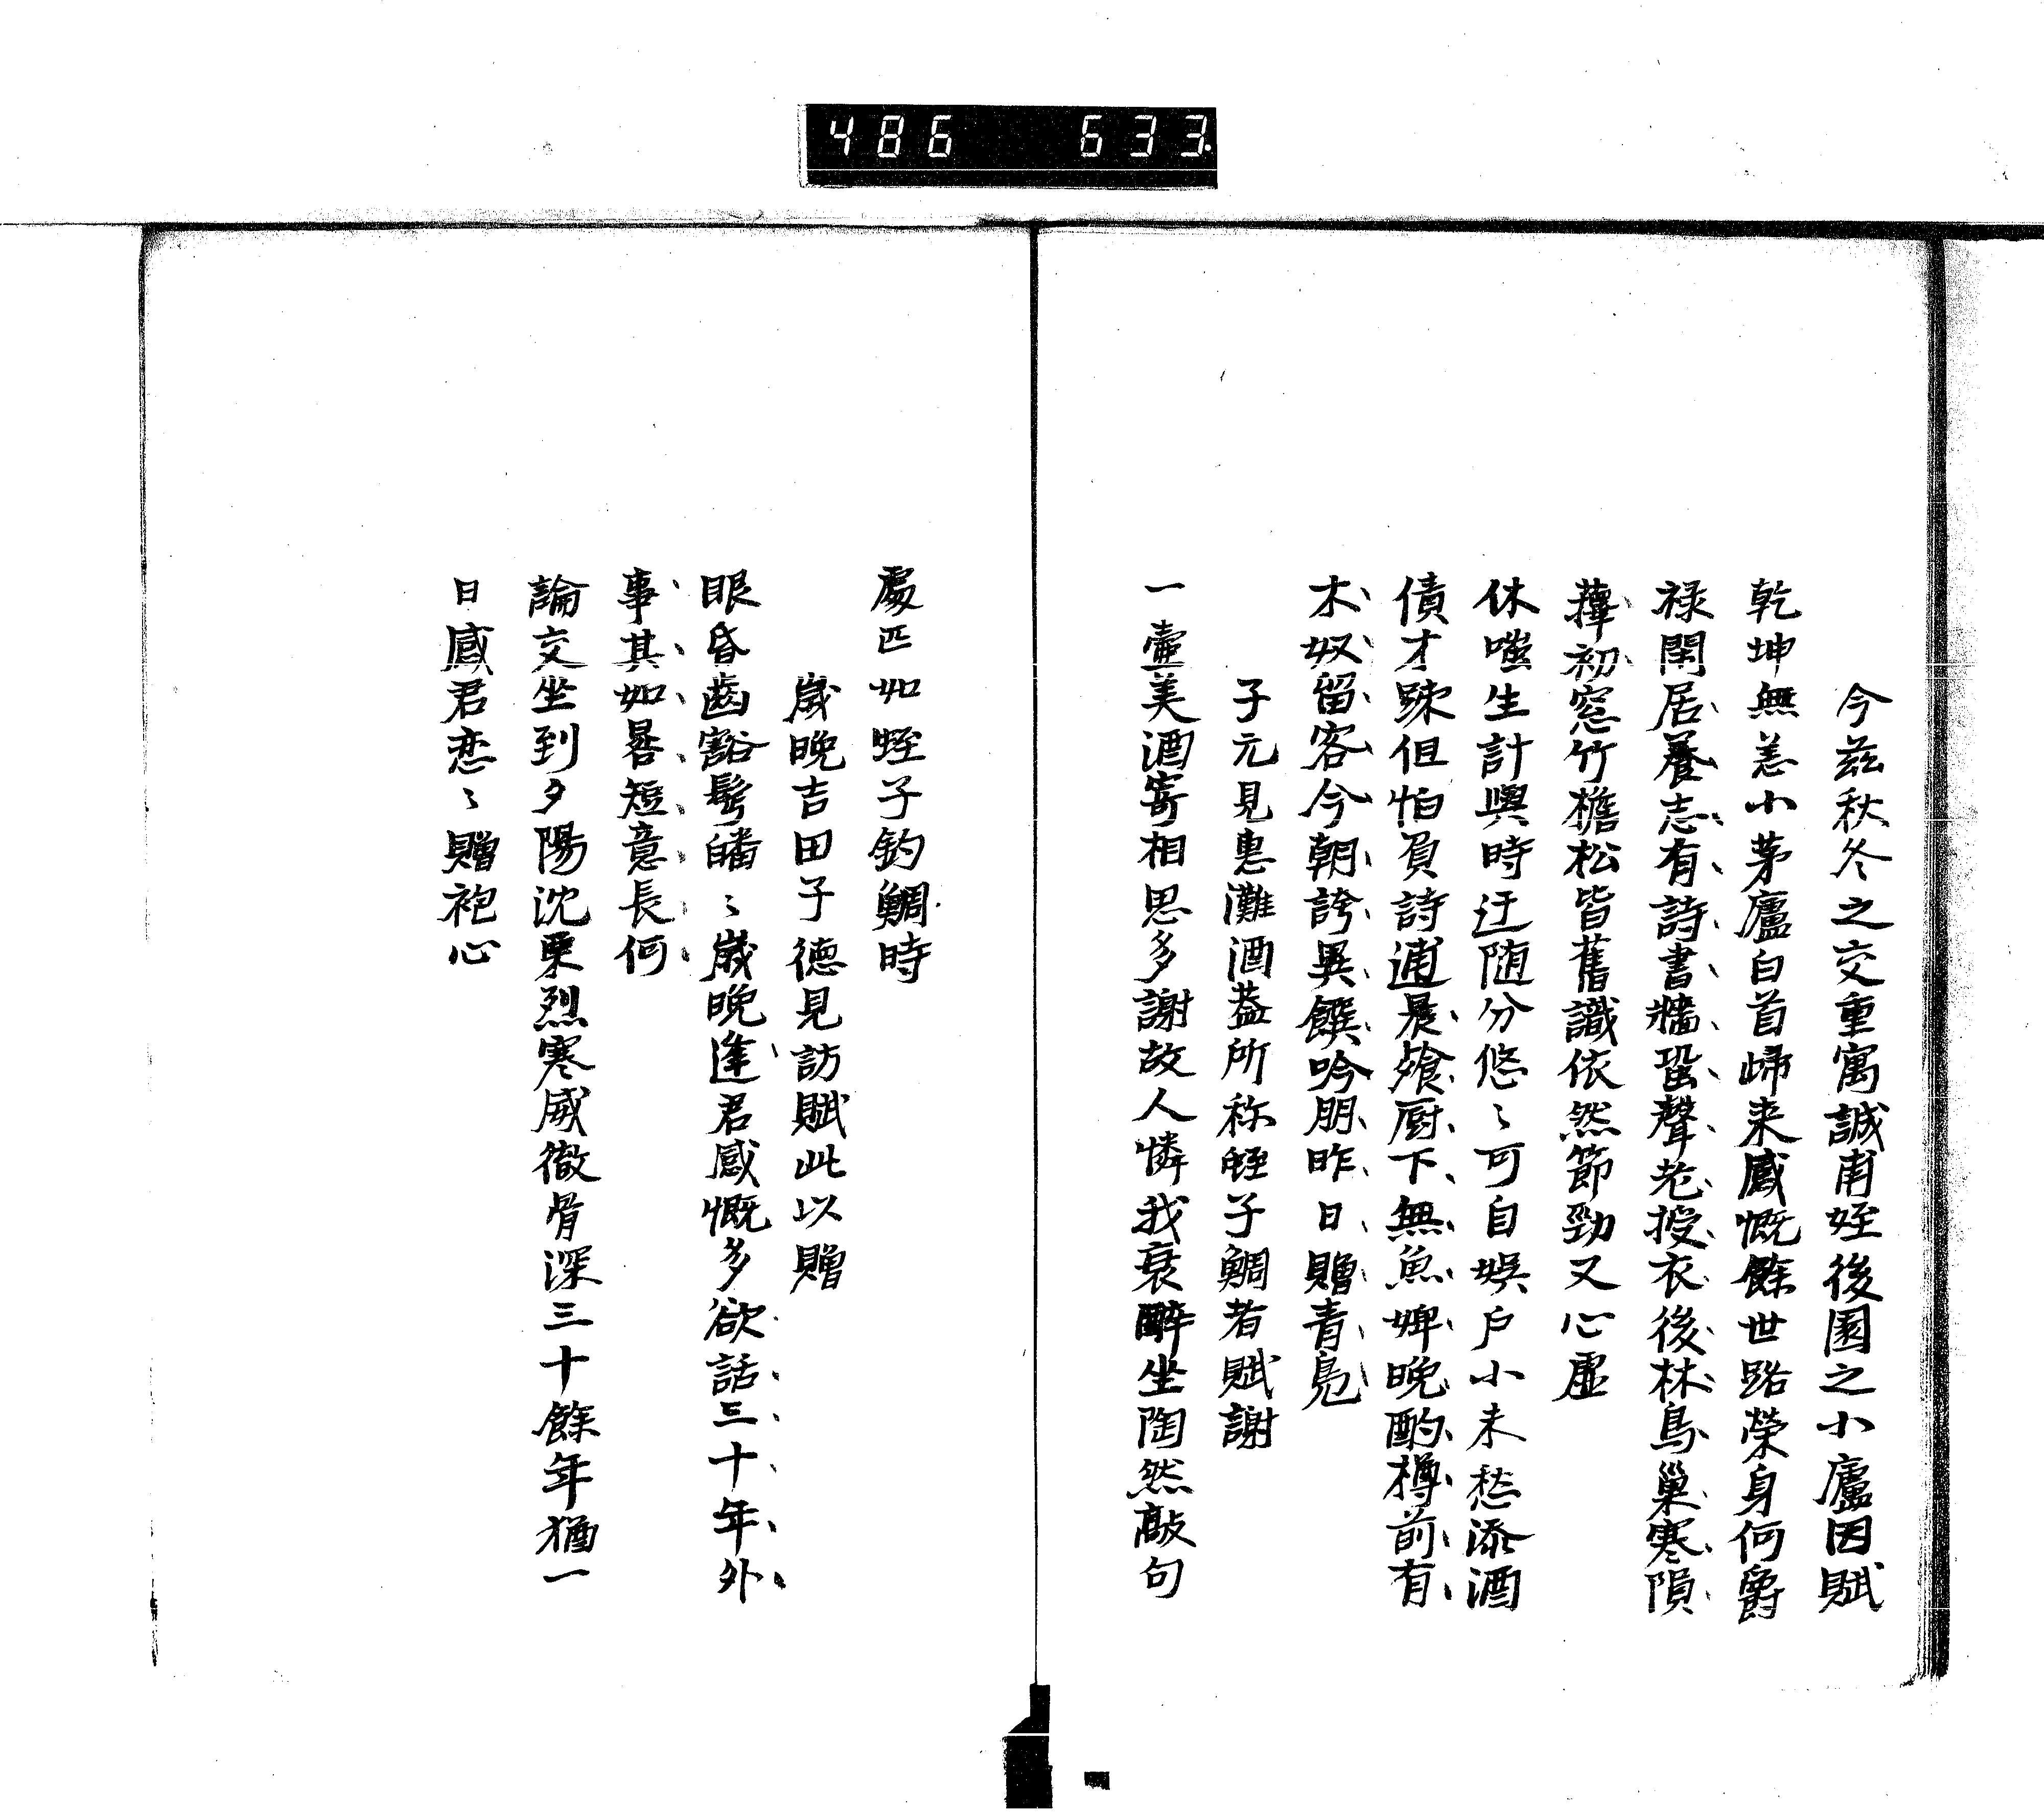 486 633
今茲秋冬之交重寓誠甫姪後園之小廬因賦
乾坤無恙小茅廬白首帰来感慨餘世路榮身何爵
禄閑居養志有詩書牆蛩聲老授衣後林鳥巢寒隕
蘀初窓竹檐松皆舊識依然節勁又心虛
休嗤生計與時迂随分悠〻可自娯戶小未愁添酒
債才踈但怕負詩逋晨飱厨下無魚婢晩酌樽前有
木奴留客今朝誇異饌吟朋昨日贈青鳧
子元見惠灘酒蓋所称蛭子鯛者賦謝
一壷美酒寄相思多謝故人憐我衰酔坐陶然敲句
處正如蛭子釣鯛時
歳晩吉田子徳見訪賦此以贈
眼昏齒豁髩皤〻歳晩逢君感慨多欲話三十年外
事其如晷短意長何
論交坐到夕陽沈栗烈寒威徹骨深三十餘年猶一
日感君恋〻贈袍心